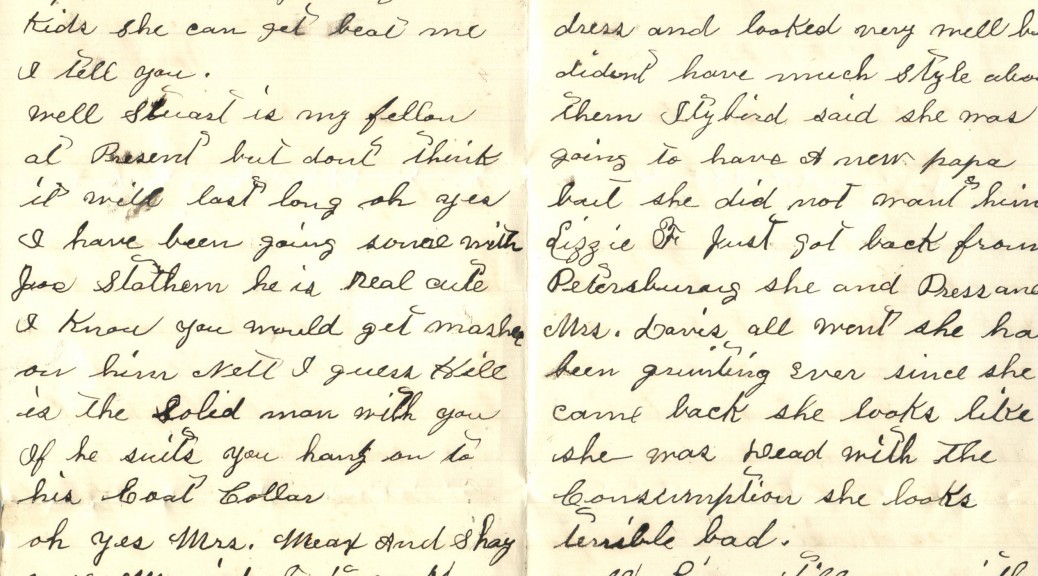 Kids she can get beat me
I tell you.
well Stuart is my fellow
at Present but dont think
it will last long oh yes
I have been going some with
Joe Stathern he is real cute
I Know you would get mashe
on him Nett I guess Kile
is the Solid man with you
If he suits you hang on to
his Coat Collar
oh yes Mrs. Meax And Shay
dress and looked very well b
dident have much Style abo
them Itybird said she was
going to have A new papa
but she did not want him
Lizzie F Just got back from
Petersburg she and Press and
Mrs. Davis all went she ha
been grunting Ever since she
came back she looks like
she was Dead with the
Consumption she looks
terrible bad.